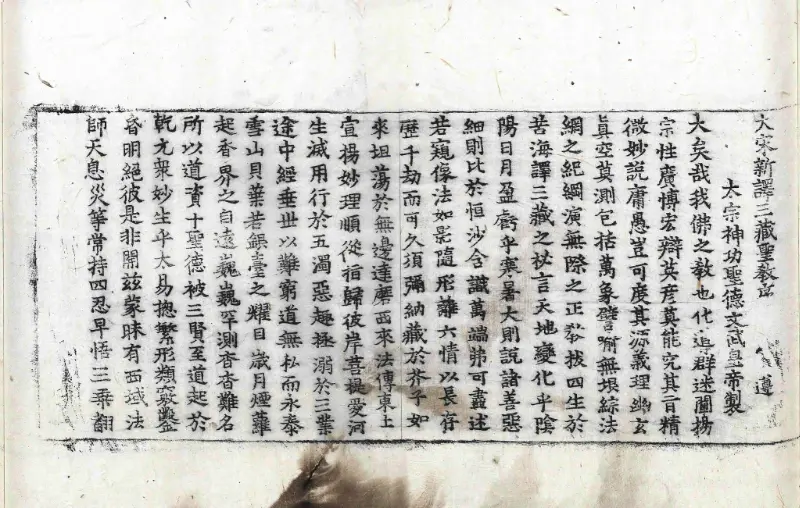 大宋新譯三藏聖教序
遵
太宗神功聖德文武皇帝製
大矣哉我佛之教也化導群迷闡揚
宗性廣博宏辯英彥莫能究其旨精
微妙說庸愚豈可度其源義理幽玄
真空莫測包括萬象譬喻無垠綜法
網之紀綱演無際之正教拔四生於
苦海譯三藏之祕言天地變化乎陰
陽日月盈虧乎寒暑大則說諸善惡
細則比於恒沙含識萬端弗可盡述
若窺像法如影隨形離六情以長存
歷千劫而可久須彌納藏於芥子如
來坦蕩於無邊達磨西來法傳東土
宣揚妙理順從指歸彼岸菩提愛河
生滅用行於五濁惡趣拯溺於三業
途中經垂世以難窮道無私而永泰
雪山貝葉若銀臺之耀目歲月煙蘿
起香界之自遠巍巍罕測杳杳難名
所以道資十聖德被三賢至道起於
乾元衆妙生乎太易揔繁形類竅鑿
昏明絕彼是非開茲蒙昧有西域法
師天息災等常持四忍早悟三乘翻